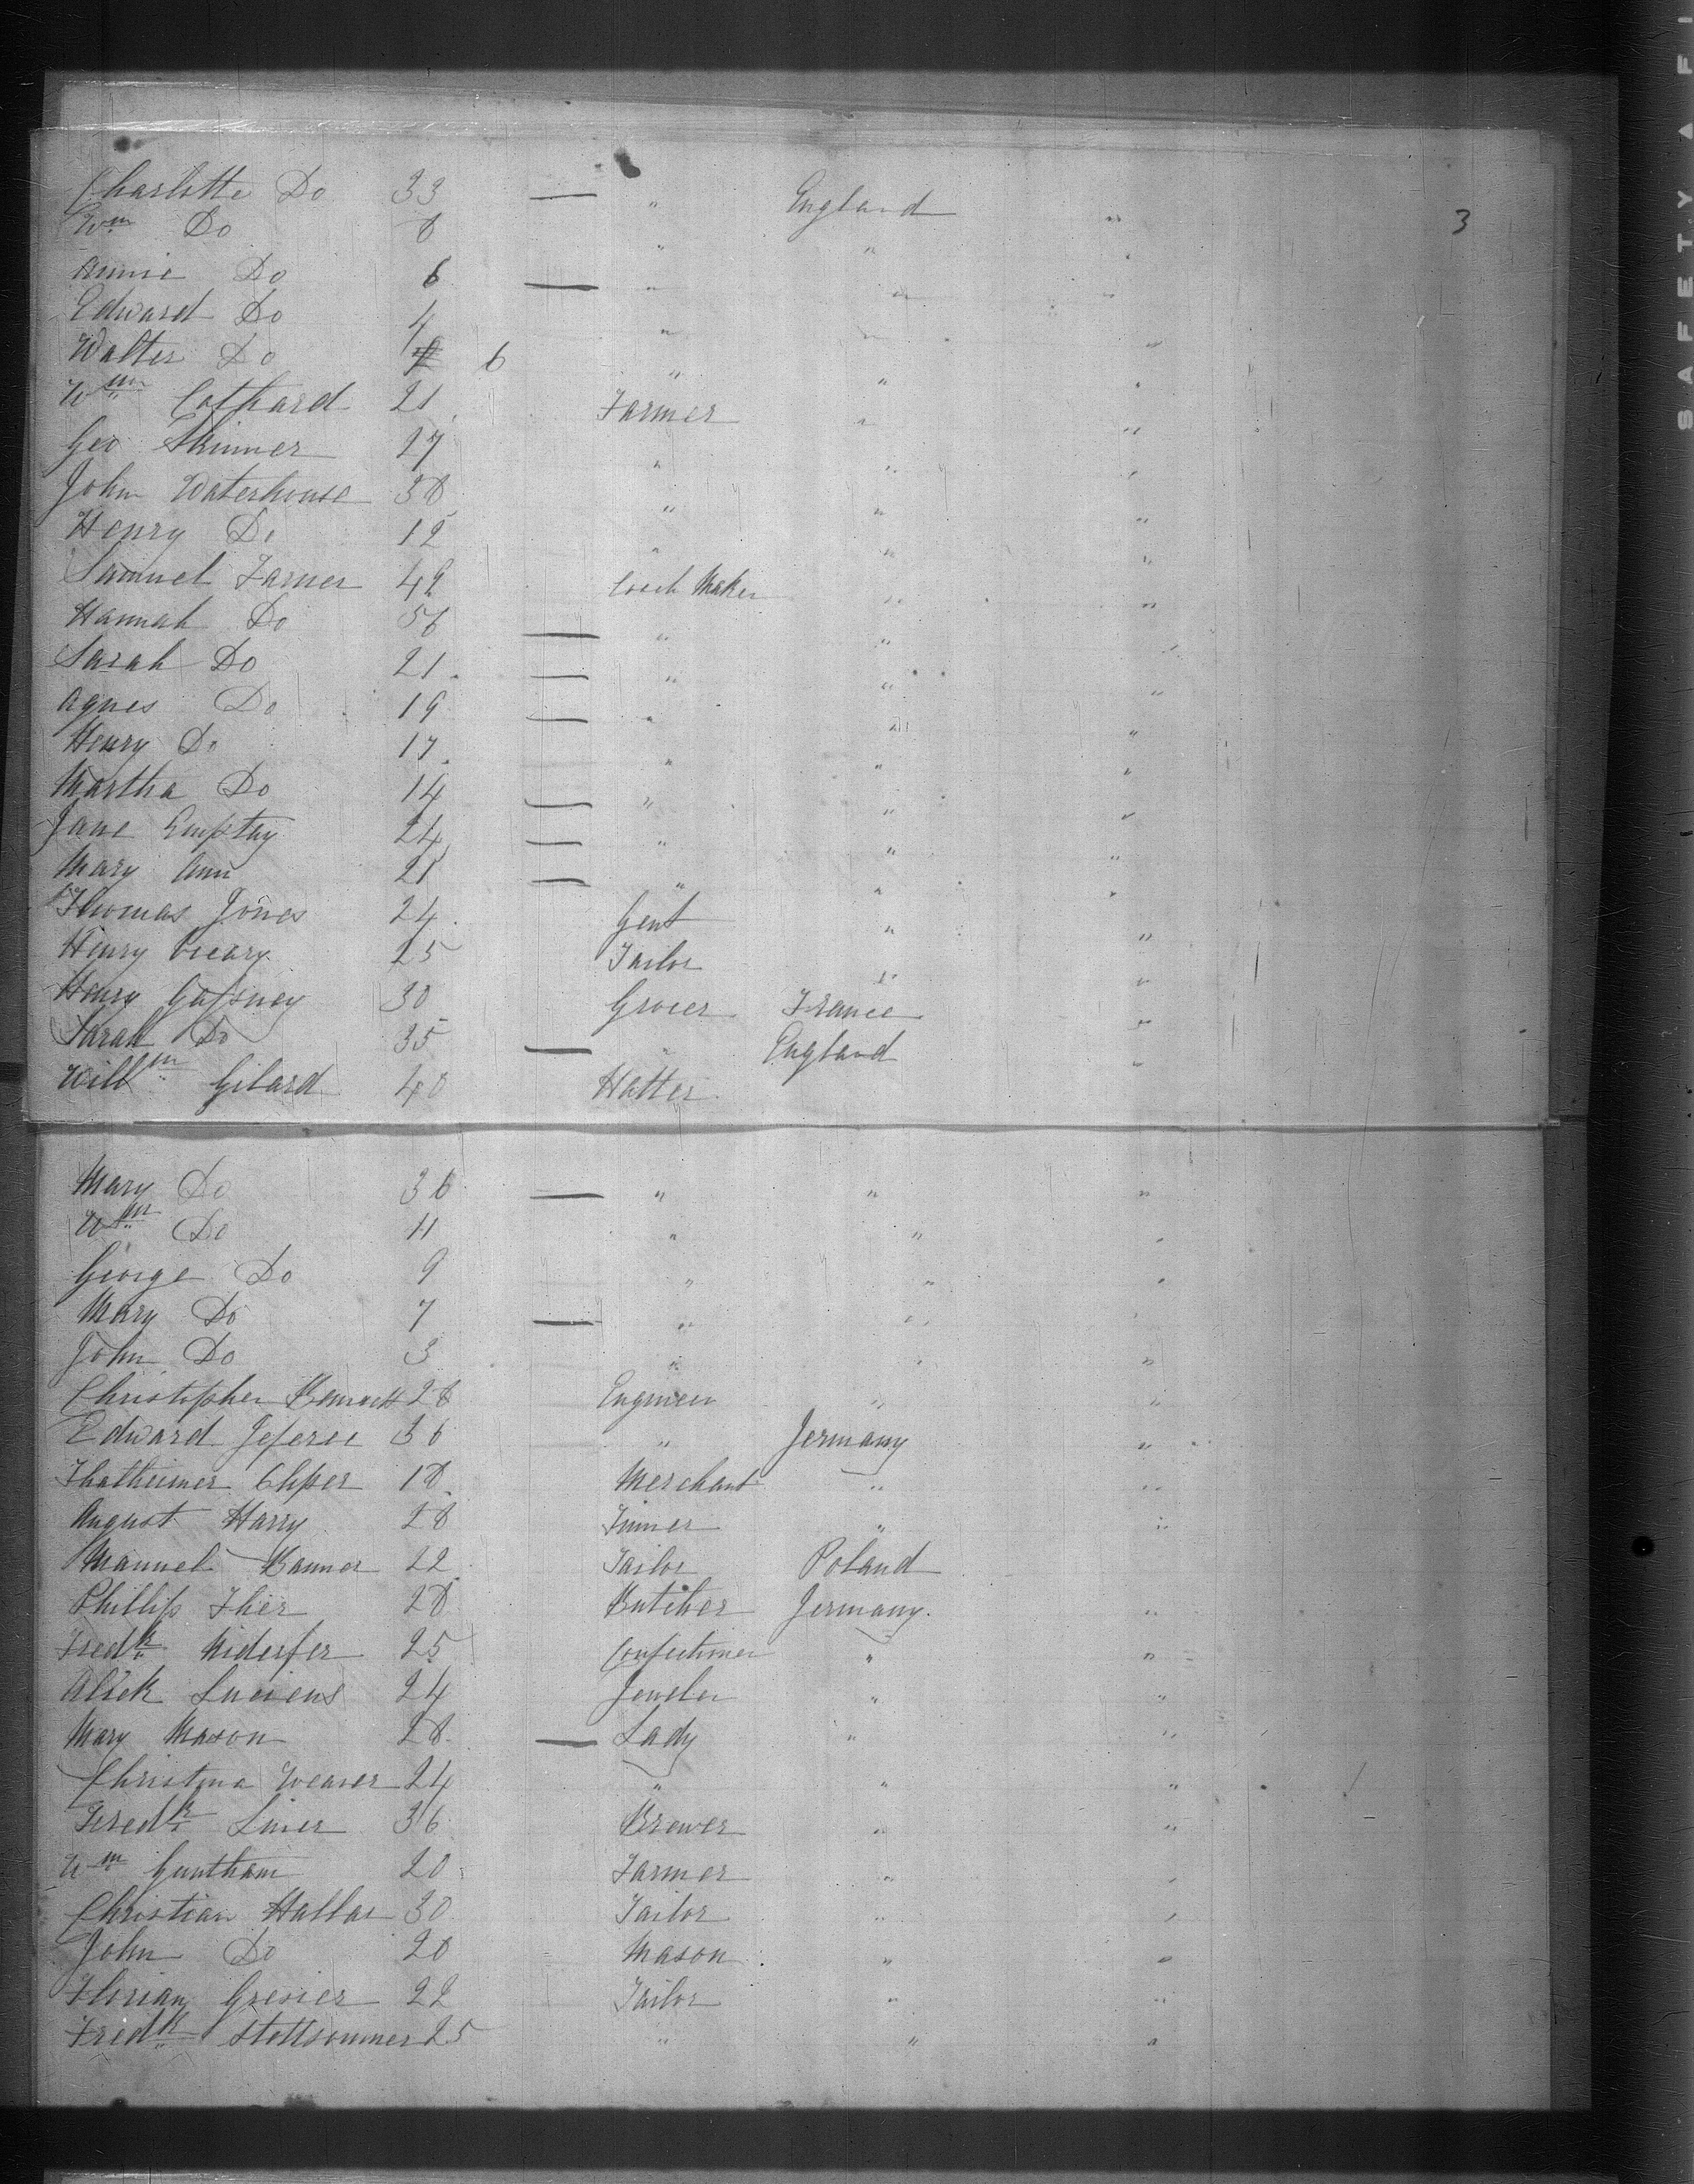 Charlotte Do 33 — " England " 3
Wm Do 8 " " "
Annie Do 6 — " " "
Edward Do 4 " " "
Walter Do 6 " " "
Wm Cothard 21 Farmer " "
Geo Skinner 27 " " "
John Waterhouse 38 " " "
Henry Do 12 " " "
Samuel Farner 49 Coach Maker " "
Hannah Do 56 — " " "
Sarah Do 21 — " " "
Agnes Do 19 — " " "
Henry Do 17 " " "
Martha Do 14 — " " "
Jane Emptay 24 — " " "
Mary Ann 21 — " " "
Thomas Jones 24 Gent " "
Henry 25 Tailor " "
Henry Gafsney 30 Grocer France "
Sarah Do 35 — " England "
Willm Gilard 40 Hatter
Mary Do 36 — " " "
Wm Do 11 " " "
George Do 9 " " "
Mary Do 7 — " " "
John Do 3 " " "
Christopher 28 Engineer " "
Edward Jeferee 36 " Germany "
18 Merchant " "
August Harry 28 Tinner " "
Manuel Banner 22 Tailor Poland
Phillip Ther 28 Butcher Germany. "
Fredk Niderfer 25 Confectioner " "
Alick Luciens 24 Jeweler " "
Mary Mason 28 — Lady " "
Christina Weaver 24 " " "
Fredk Liner 36 Brewer " "
Wm Guntham 20 Farmer " "
Christian Hallar 30 Tailor " "
John Do 20 Mason " "
Florian Gresier 22 Tailor " "
Fredk Stottsommer 25 " " "
SAFETY ▲ FI